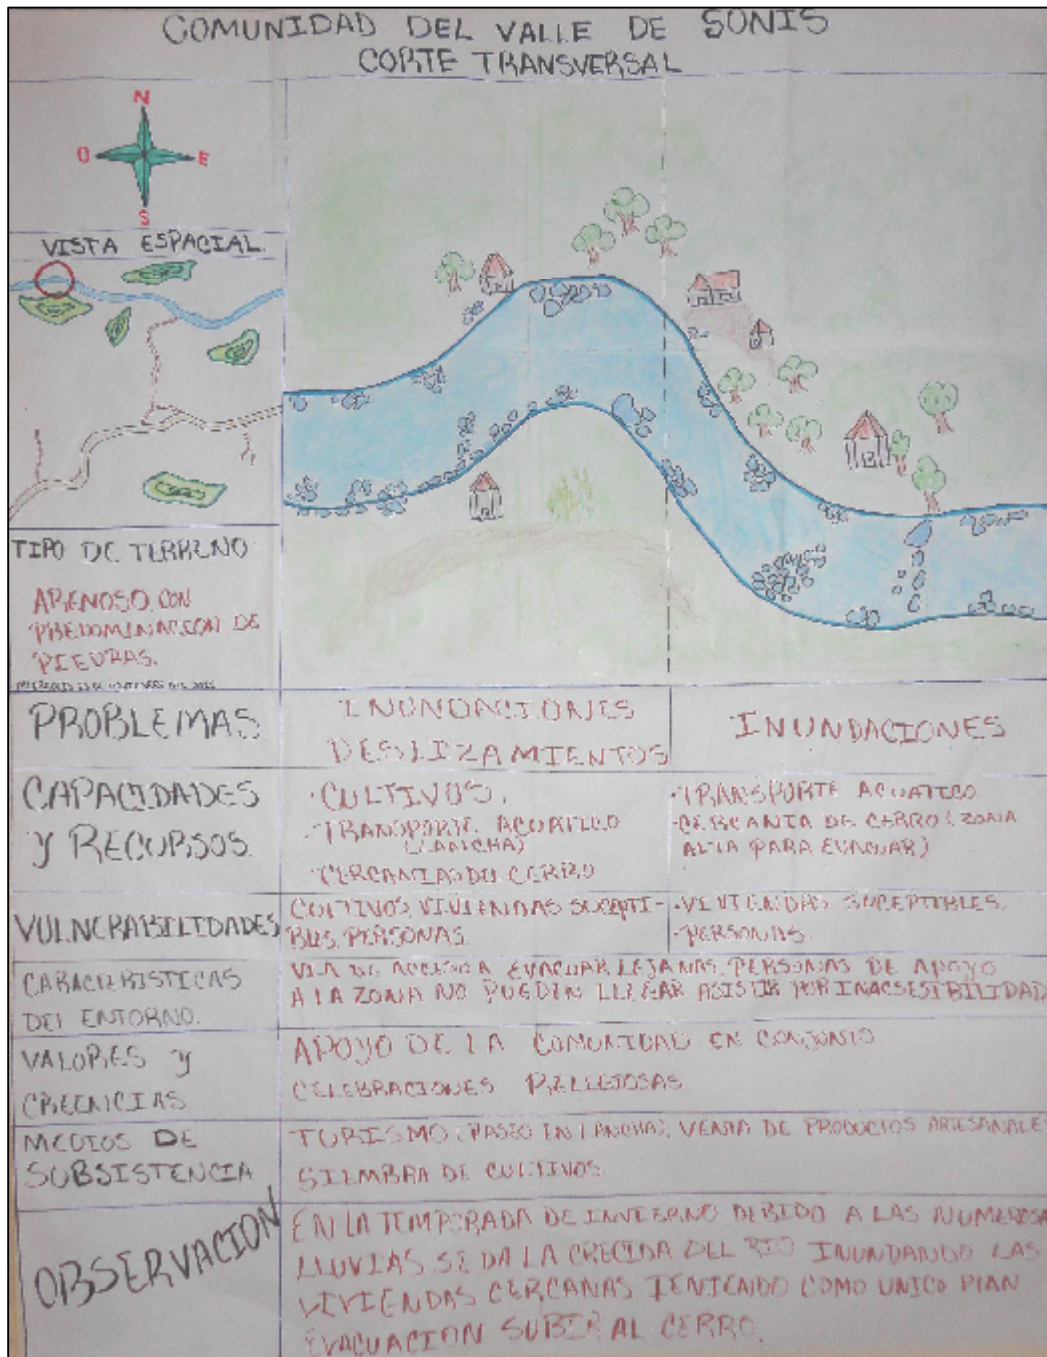 COMUNIDAD DEL VALLE DE SONIS
CORTE TRANSVERSAL
N
O E
S
VISTA ESPACIAL.
TIPO DE TERRENO
ARENOSO, CON
PREDOMINACION DE
PIEDRAS.
PROBLEMAS
INUNDACIONES
DESLIZAMIENTOS
INUNDACIONES
CAPACIDADES
Y RECURSOS
·CULTIVOS.
·TRANSPORTE ACUATICO
(LANCHA)
·CERCANIAS DEL CERRO
·TRANSPORTE ACUATICO
·CERCANIA DE CERRO (ZONA
ALTA PARA EVACUAR)
VULNERABILIDADES
CULTIVOS, VIVIENDAS SUCEPTI-
BLES, PERSONAS.
·VIVIENDAS SUCEPTIBLES.
·PERSONAS.
CARACTERISTICAS
DEL ENTORNO.
VIA DE ACCESO A EVACUAR LEJANAS, PERSONAS DE APOYO
A LA ZONA NO PUEDEN LLEGAR ASISTIR POR INACSESIBILIDAD
VALORES Y
CREENCIAS
APOYO DE LA COMUNIDAD EN CONJUNTO
CELEBRACIONES RELIGIOSAS
MEDIOS DE
SUBSISTENCIA
TURISMO (PASEO EN LANCHA), VENTA DE PRODUCTOS ARTESANALE
SIEMBRA DE CULTIVOS.
OBSERVACION
EN LA TEMPORADA DE INVIERNO DEBIDO A LAS NUMEROSA
LLUVIAS SE DA LA CRECIDA DEL RIO INUNDANDO LAS
VIVIENDAS CERCANAS TENIENDO COMO UNICO PLAN
EVACUACION SUBIR AL CERRO.